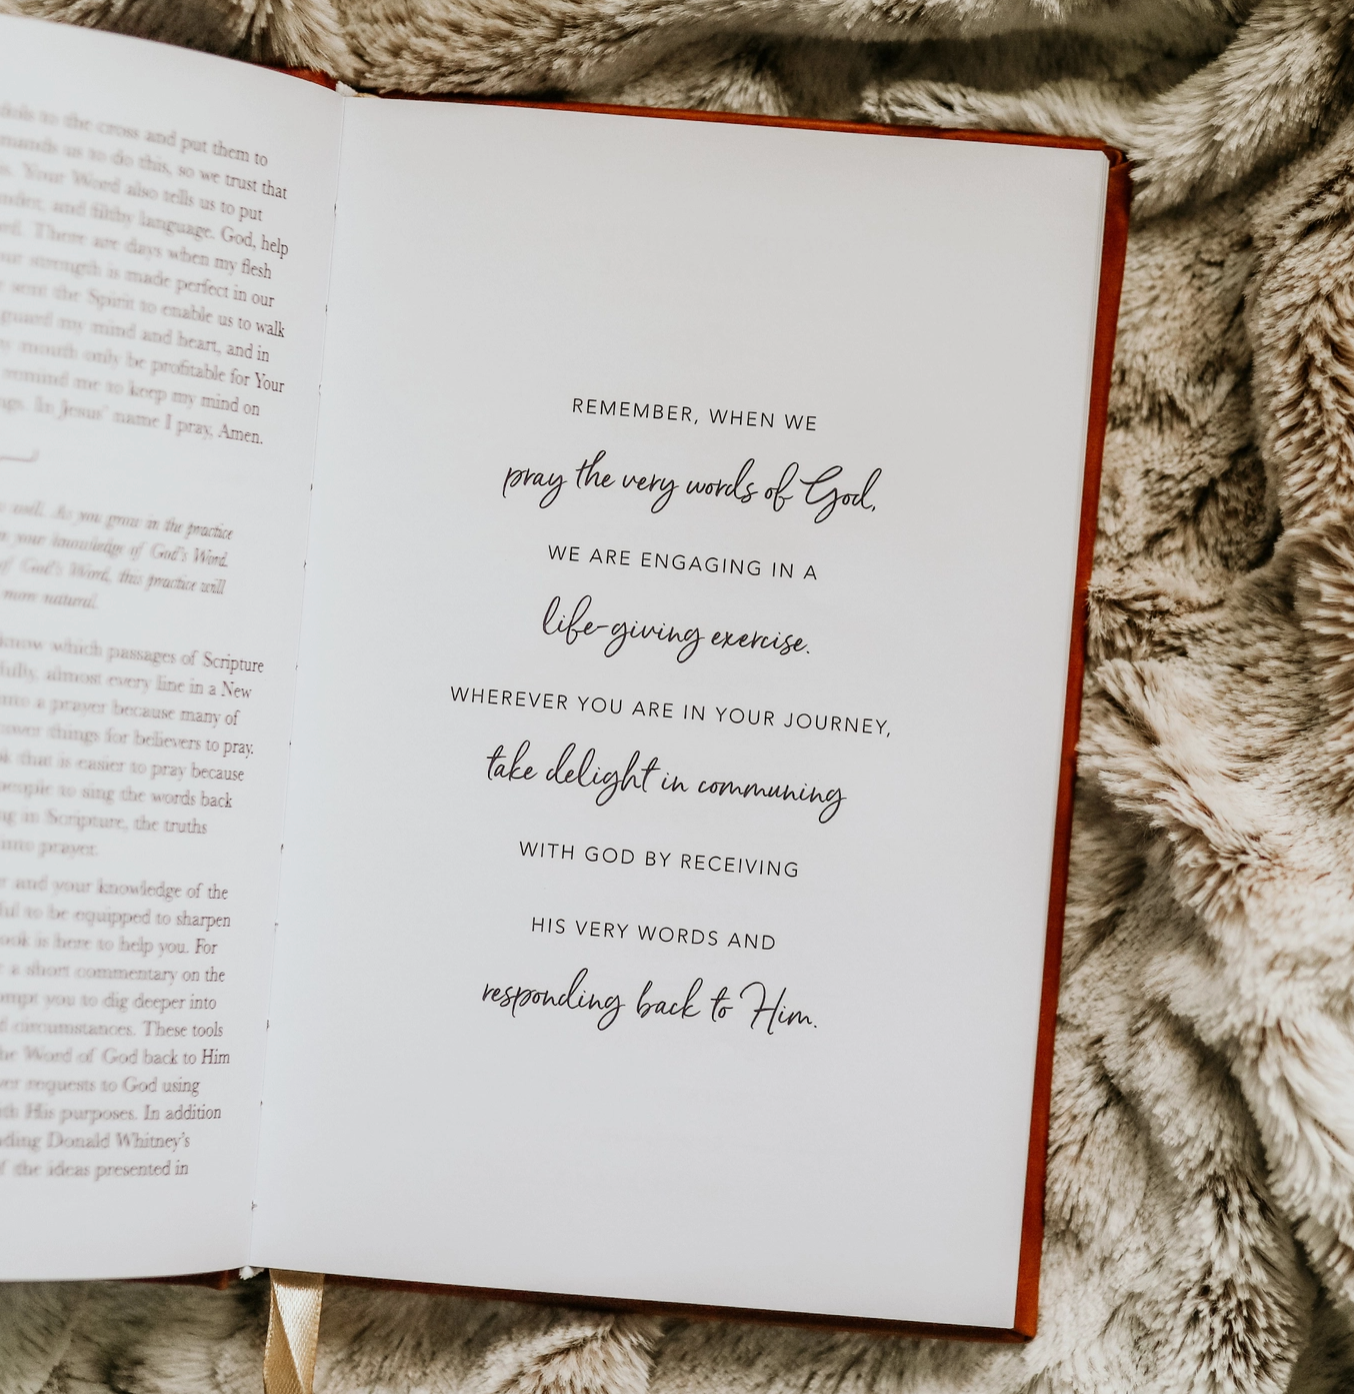 to the cross and put them to
us to do this, so we trust that
Your Word also tells us to put
and filthy language. God, help
There are days when my flesh
strength is made perfect in our
sent the Spirit to enable us to walk
guard my mind and heart, and in
mouth only be profitable for Your
remind me to keep my mind on
In Jesus' name I pray, Amen.
well. As you grow in the practice
your knowledge of God's Word.
of God's Word, this practice will
more natural.
know which passages of Scripture
almost every line in a New
into a prayer because many of
things for believers to pray.
that is easier to pray because
people to sing the words back
in Scripture, the truths
into prayer.
and your knowledge of the
to be equipped to sharpen
book is here to help you. For
a short commentary on the
you to dig deeper into
circumstances. These tools
the Word of God back to Him
requests to God using
His purposes. In addition
Donald Whitney's
of the ideas presented in
REMEMBER, WHEN WE
pray the very words of God,
WE ARE ENGAGING IN A
life-giving exercise.
WHEREVER YOU ARE IN YOUR JOURNEY,
take delight in communing
WITH GOD BY RECEIVING
HIS VERY WORDS AND
responding back to Him.